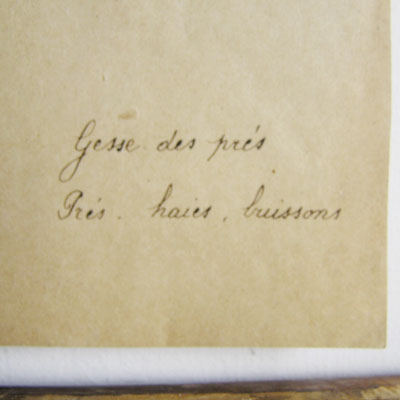 Gesse des prés
Prés. haies, buissons